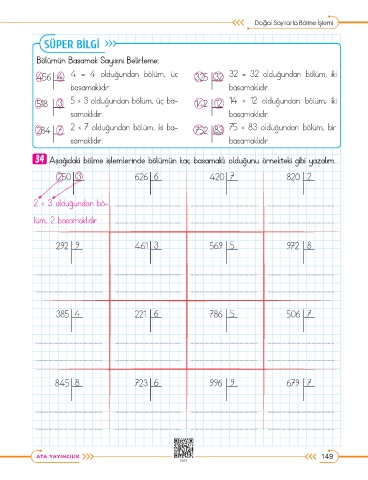 Doğal Sayılarla Bölme İşlemi
SÜPER BİLGİ
Bölümün Basamak Sayısını Belirleme:
456 4 4 = 4 olduğundan bölüm, üç basamaklıdır.
325 32 32 = 32 olduğundan bölüm, iki basamaklıdır.
518 3 5 > 3 olduğundan bölüm, üç basamaklıdır.
142 12 14 > 12 olduğundan bölüm, iki basamaklıdır.
284 7 2 < 7 olduğundan bölüm, iki basamaklıdır.
752 83 75 < 83 olduğundan bölüm, bir basamaklıdır.
34 Aşağıdaki bölme işlemlerinde bölümün kaç basamaklı olduğunu örnekteki gibi yazalım.
250 3 626 6 420 7 820 2
2 < 3 olduğundan bö-
lüm, 2 basamaklıdır.
292 9 461 3 569 5 972 8
385 4 221 6 786 5 506 7
845 8 723 6 996 9 679 7
ATA YAYINCILIK
149